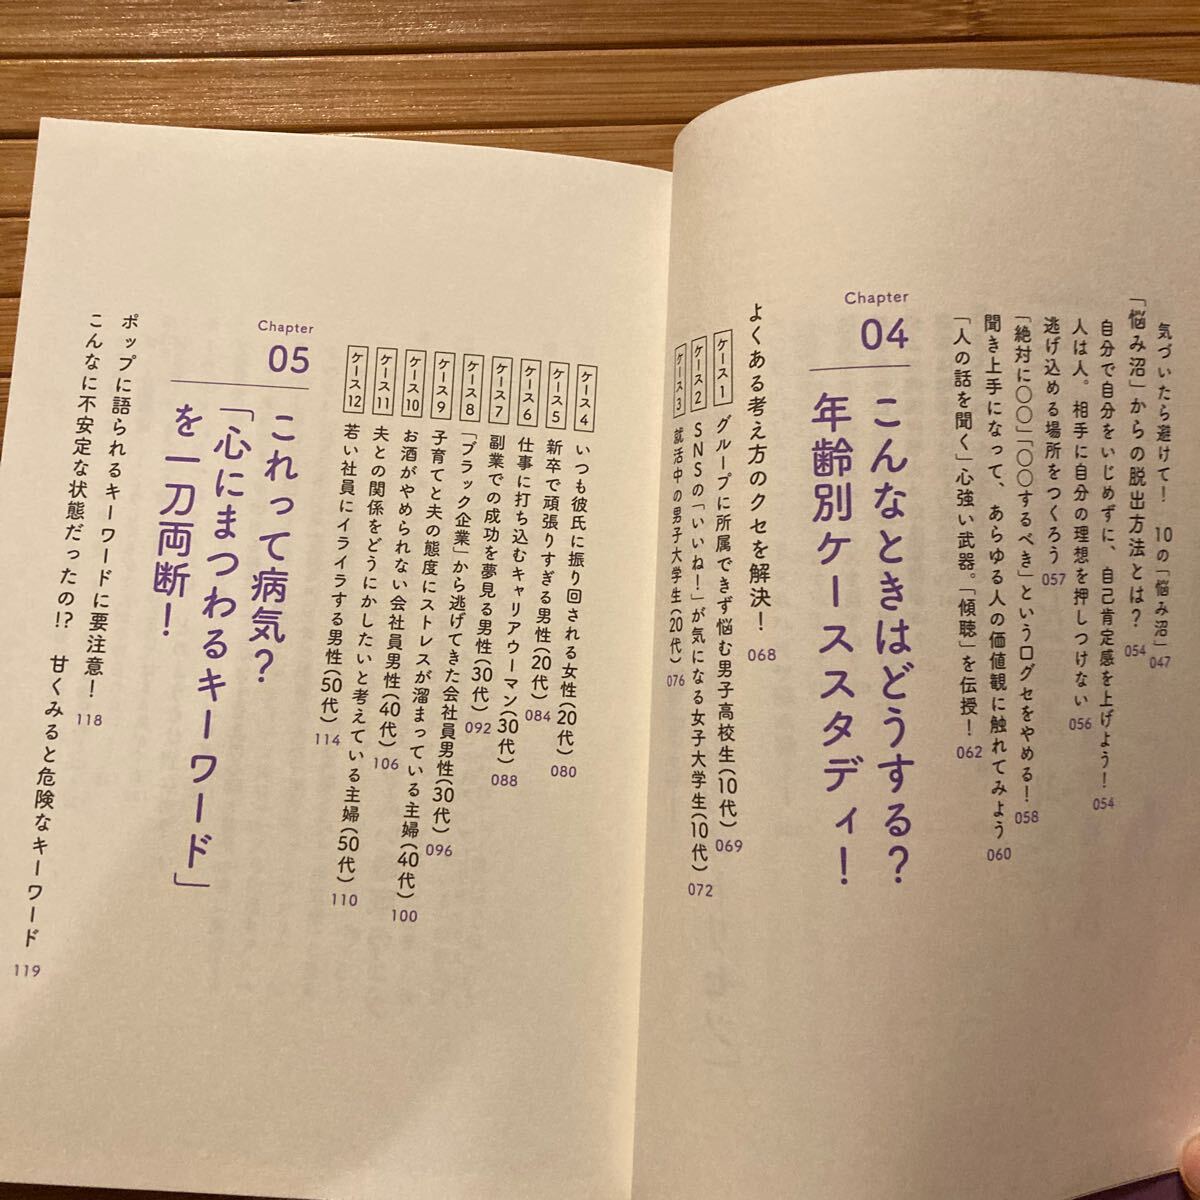 気づいたら避けて! 10の「悩み沼」 047
「悩み沼」からの脱出方法とは? 054
自分で自分をいじめずに、自己肯定感を上げよう! 054
人は人。相手に自分の理想を押しつけない 056
逃げ込める場所をつくろう 057
「絶対に○○」「○○するべき」という口グセをやめる! 058
聞き上手になって、あらゆる人の価値観に触れてみよう 060
「人の話を聞く」心強い武器。「傾聴」を伝授! 062
Chapter
04
こんなときはどうする?
年齢別ケーススタディ!
よくある考え方のクセを解決! 068
ケース1 グループに所属できず悩む男子高校生(10代) 069
ケース2 SNSの「いいね!」が気になる女子大学生(10代) 072
ケース3 就活中の男子大学生(20代) 076
ケース4 いつも彼氏に振り回される女性(20代) 080
ケース5 新卒で頑張りすぎる男性(20代) 084
ケース6 仕事に打ち込むキャリアウーマン(30代) 088
ケース7 副業での成功を夢見る男性(30代) 092
ケース8 「ブラック企業」から逃げてきた会社員男性(30代) 096
ケース9 子育てと夫の態度にストレスが溜まっている主婦(40代) 100
ケース10 お酒がやめられない会社員男性(40代) 106
ケース11 夫との関係をどうにかしたいと考えている主婦(50代) 110
ケース12 若い社員にイライラする男性(50代) 114
Chapter
05
これって病気?
「心にまつわるキーワード」
を一刀両断!
ポップに語られるキーワードに要注意! 118
こんなに不安定な状態だったの!? 甘くみると危険なキーワード 119